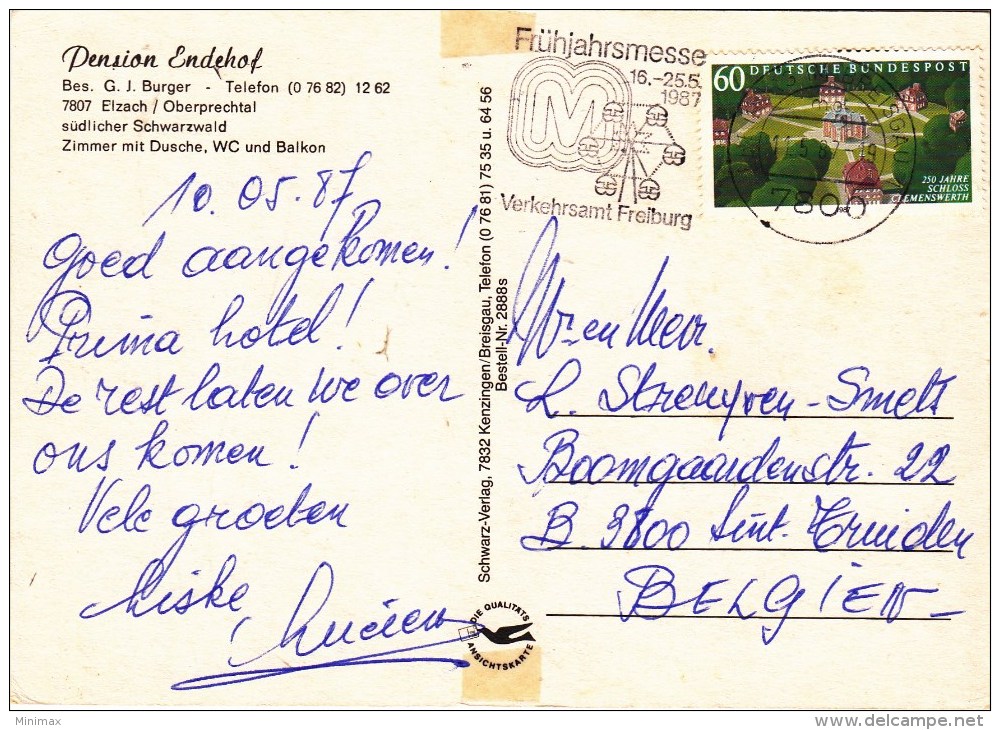 Pension Endehof
Bes. G. J. Burger - Telefon (0 76 82) 12 62
7807 Elzach / Oberprechtal
südlicher Schwarzwald
Zimmer mit Dusche, WC und Balkon
10.05.87
Goed aangekomen!
Prima hotel!
De rest laten we over
ons komen!
Vele groeten
Miske,
Lucien
Schwarz-Verlag, 7832 Kenzingen/Breisgau, Telefon (0 76 81) 75 35 u. 64 56
Bestell-Nr. 2888s
DIE QUALITÄTS
ANSICHTSKARTE
Frühjahrsmesse
16.-25.5.
1987
M
Verkehrsamt Freiburg
60 DEUTSCHE BUNDESPOST
250 JAHRE
SCHLOSS
CLEMENSWERTH
1987
7800
Mr en Mevr.
L. Strouyven-Smets
Boomgaardenstr. 22
B. 3800 Sint. Truiden
BELGIEN
Minimax
delcampe.net